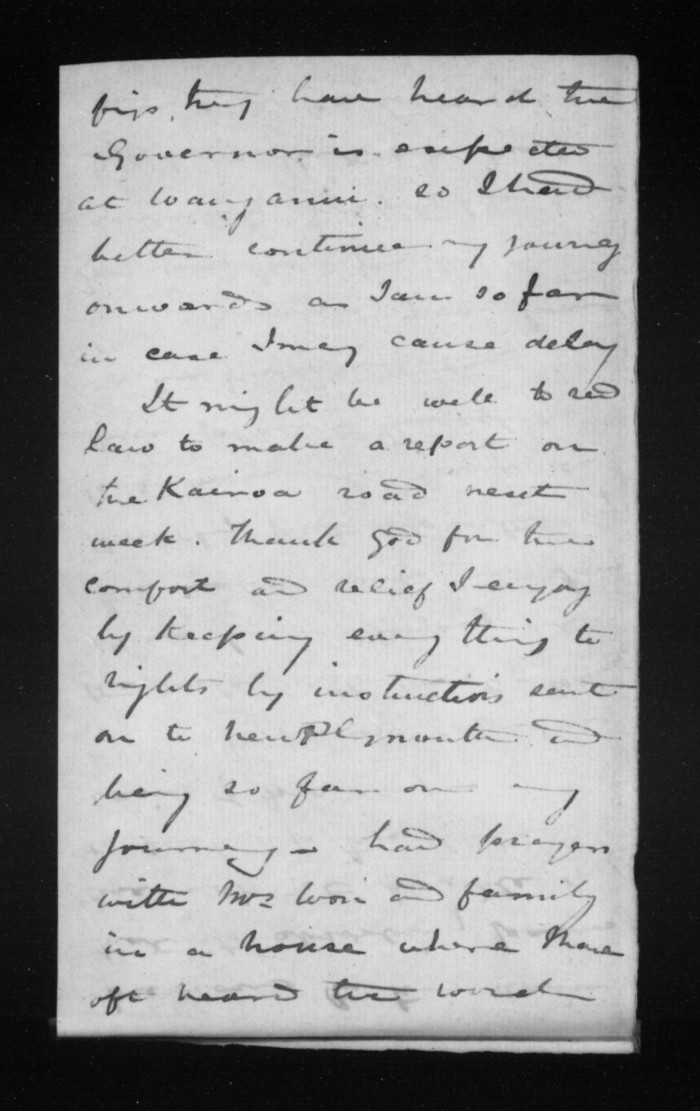 figs. they have heard the
Governor is expected
at Wanganui. so I had
better continue my journey
onwards as I am so far
in case I may cause delay
It might be well to
Law to make a report on
the Kairoa road next
week. Thank God for the
comfort and relief I enjoy
by keeping every thing to
rights by instructions sent
on to New Plymouth and
being so far on my
journey - had prayers
with Mrs and family
in a house where I have
oft heard the word